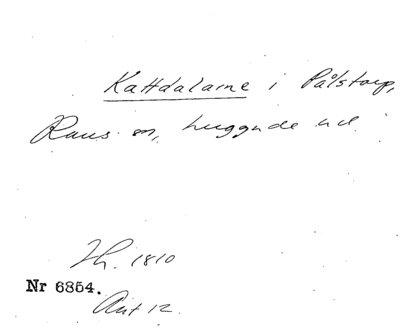 Kattdalarne i Pålstorp,
Raus sn, huggnde ved
Th. 1810
Nr 6854.
Ant 12.